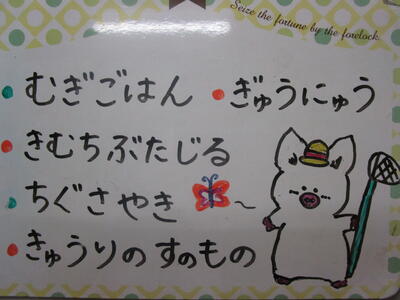 Seize the fortune by the forelock.
むぎごはん ぎゅうにゅう
きむちぶたじる
ちぐさやき
きゅうりのすのもの